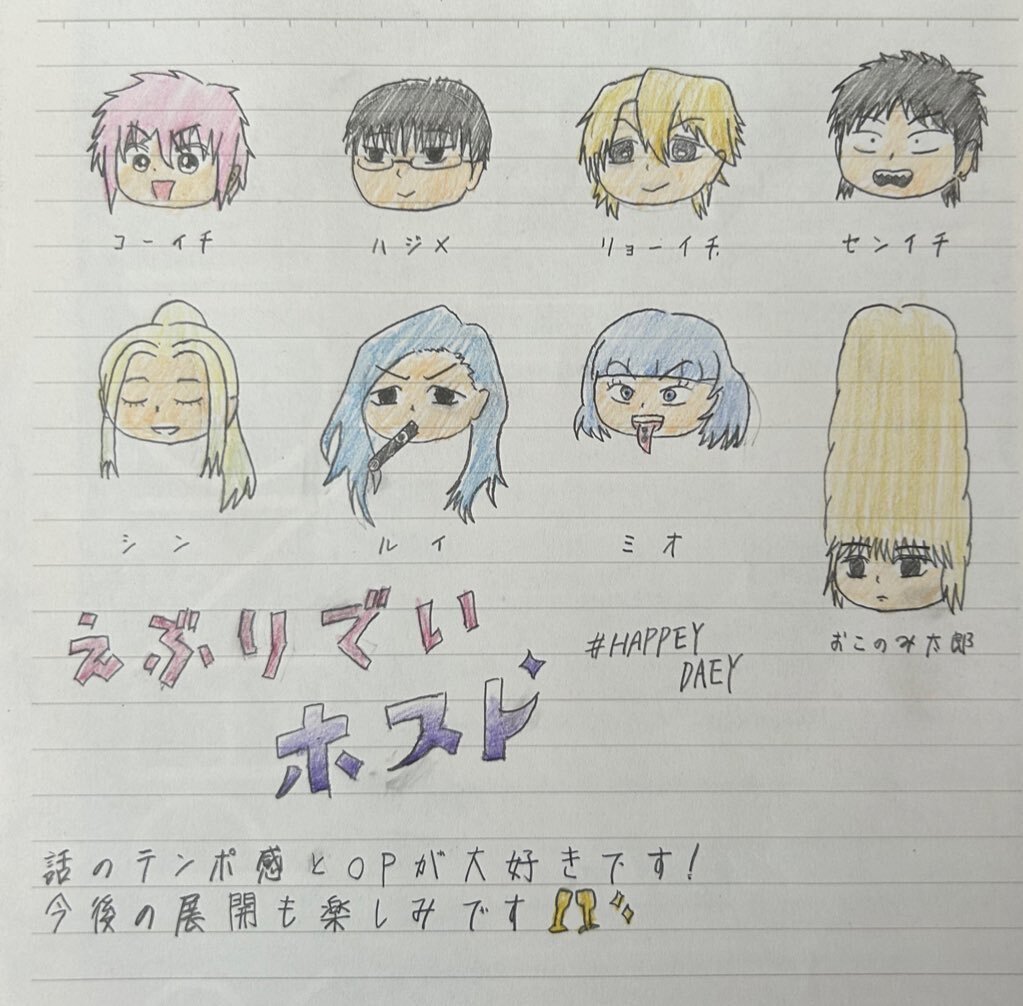 コーイチ ハジメ リョーイチ センイチ
シン ルイ ミオ
おこのみ太郎
えぶりでい
ホスト
#HAPPEY
DAEY
話のテンポ感とOPが大好きです!
今後の展開も楽しみです